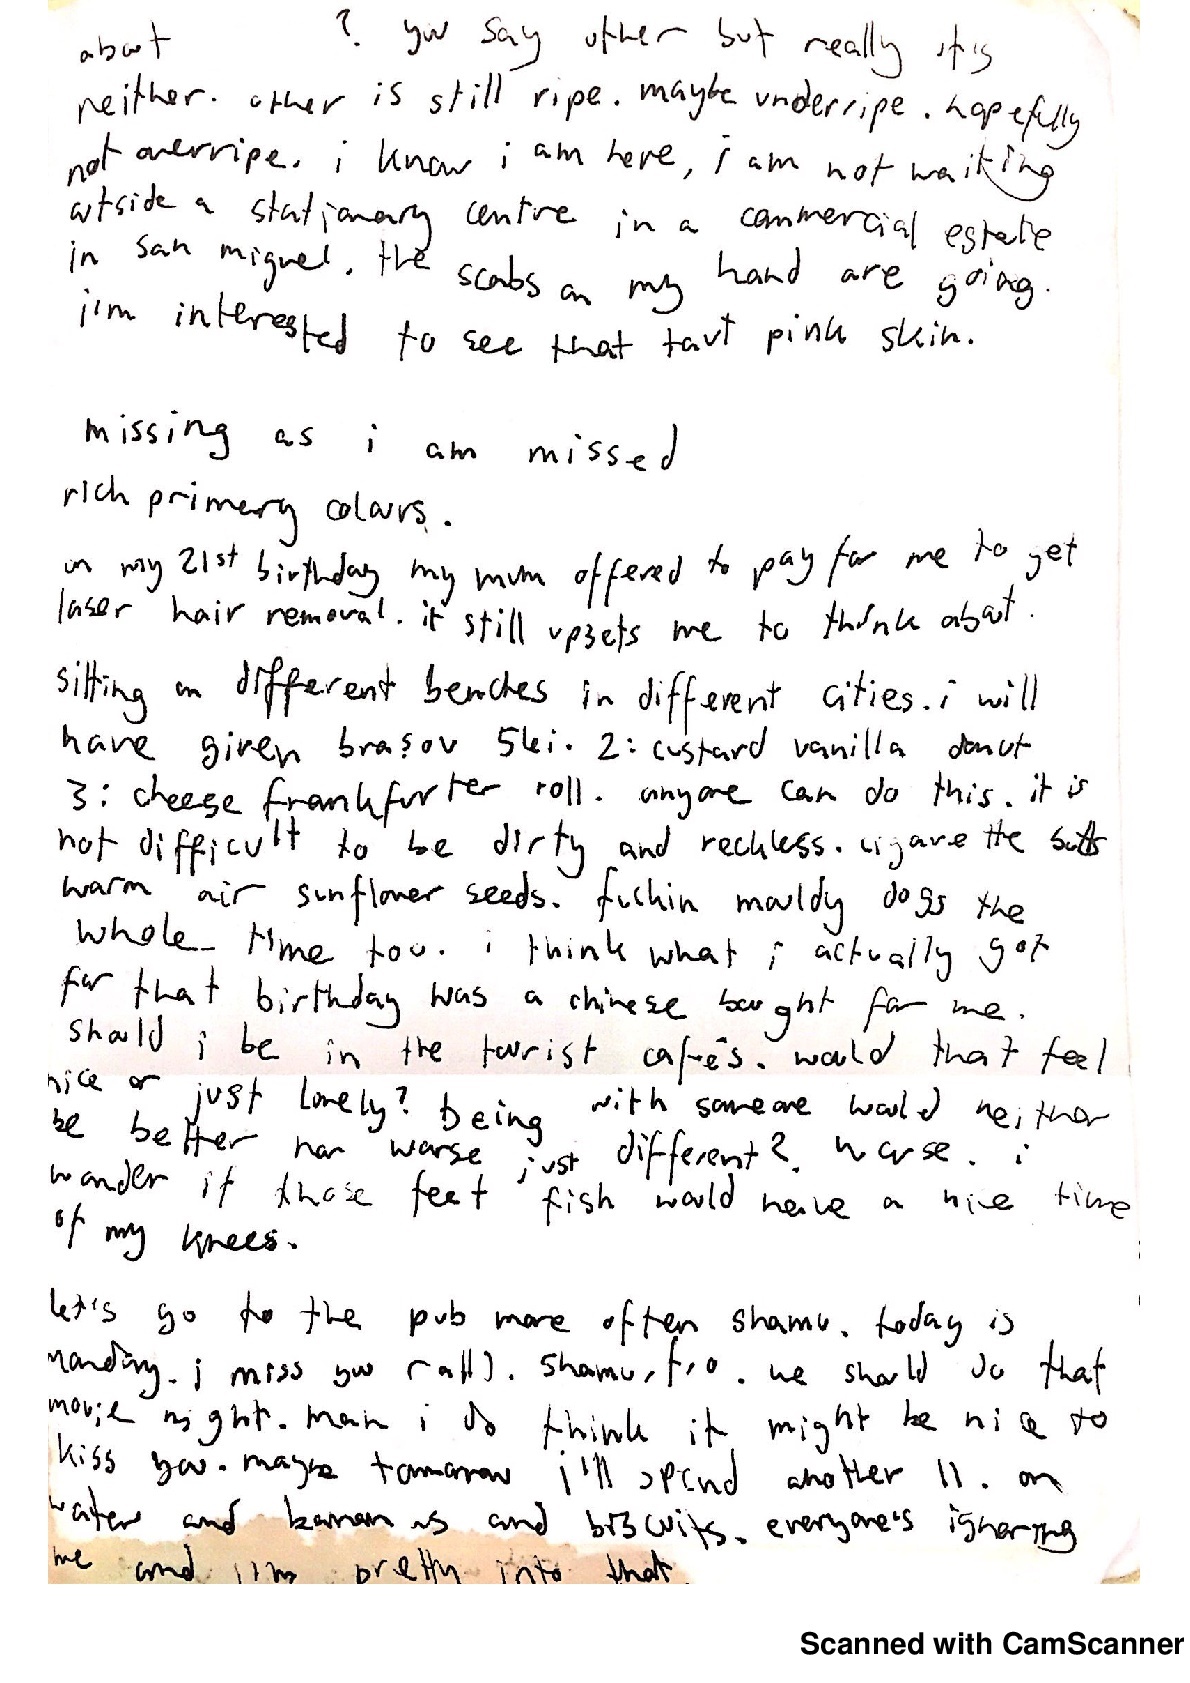 about ? you say other but really it's
neither. other is still ripe. maybe underripe. hopefully
not overripe. i know i am here, i am not waiting
outside a stationary centre in a commercial estate
in san miguel. the scabs on my hand are going.
i'm interested to see that taut pink skin.
missing as i am missed
rich primary colours.
on my 21st birthday my mum offered to pay for me to get
laser hair removal. it still upsets me to think about.
sitting on different benches in different cities. i will
have given brașov 5lei. 2: custard vanilla donut
3: cheese frankfurter roll. anyone can do this. it is
not difficult to be dirty and reckless. cigarette butts
warm air sunflower seeds. fuckin mouldy dogs the
whole time too. i think what i actually got
for that birthday was a chinese bought for me.
should i be in the tourist cafés. would that feel
nice or just lonely? being with someone would neither
be better nor worse just different?. worse. i
wonder if those feet fish would have a nice time
of my knees.
let's go to the pub more often shamu. today is
monday. i miss you shamu, we should do that
movie night. man i do think it might be nice to
kiss you. maybe tomorrow i'll spend another 11. on
water and bananas and biscuits. everyone's ignoring
me and i'm pretty into that.
Scanned with CamScanner